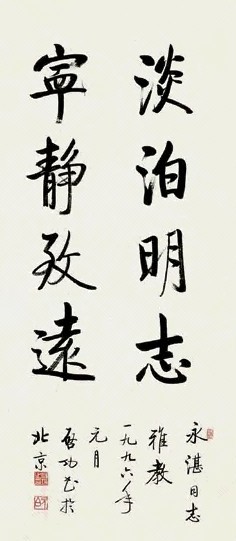 淡泊明志
寧静致遠
永湛同志
雅教
一九九六年
元月
启功书於
北京